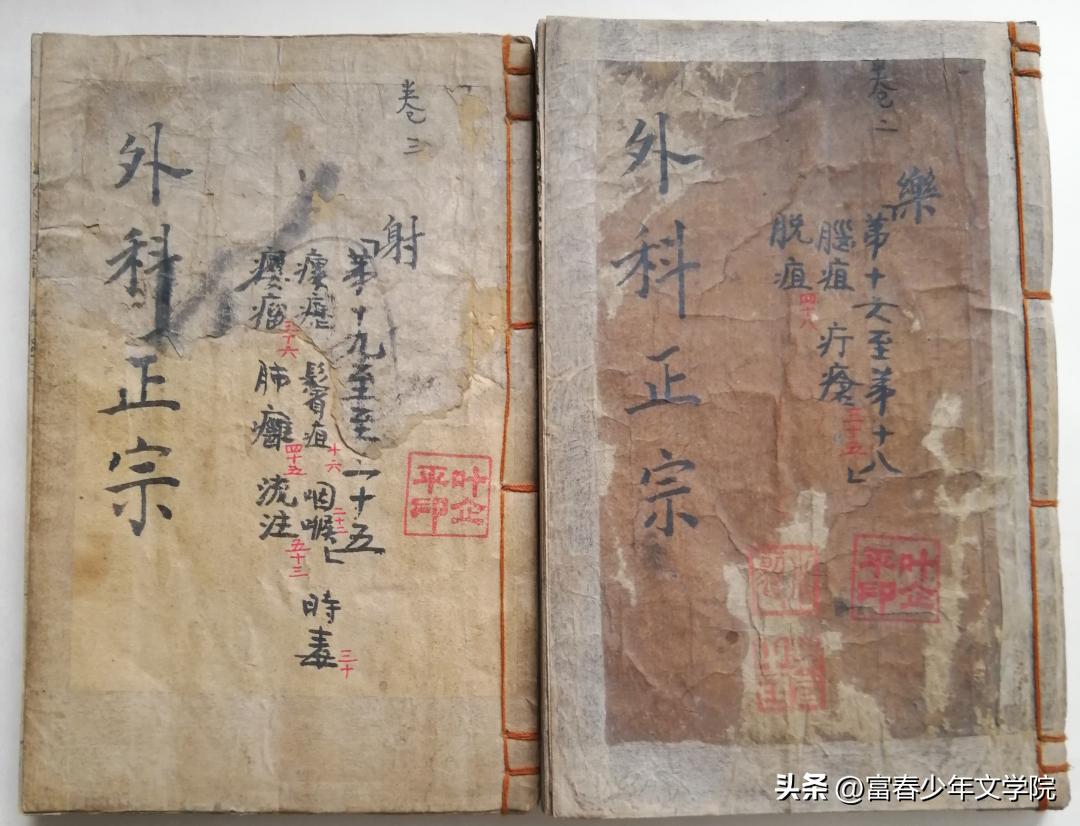 卷三
射
「第十九至至二十五
瘰癧 鬢疽十六 咽喉二十二」 時毒三十
癭瘤三十六 肺癰四十五 流注五十三
外科正宗
叶企平印
卷二
樂
「第十六至第十八
腦疽 疔瘡三十五」
脱疽四十八
外科正宗
叶企平印
头条 @富春少年文学院